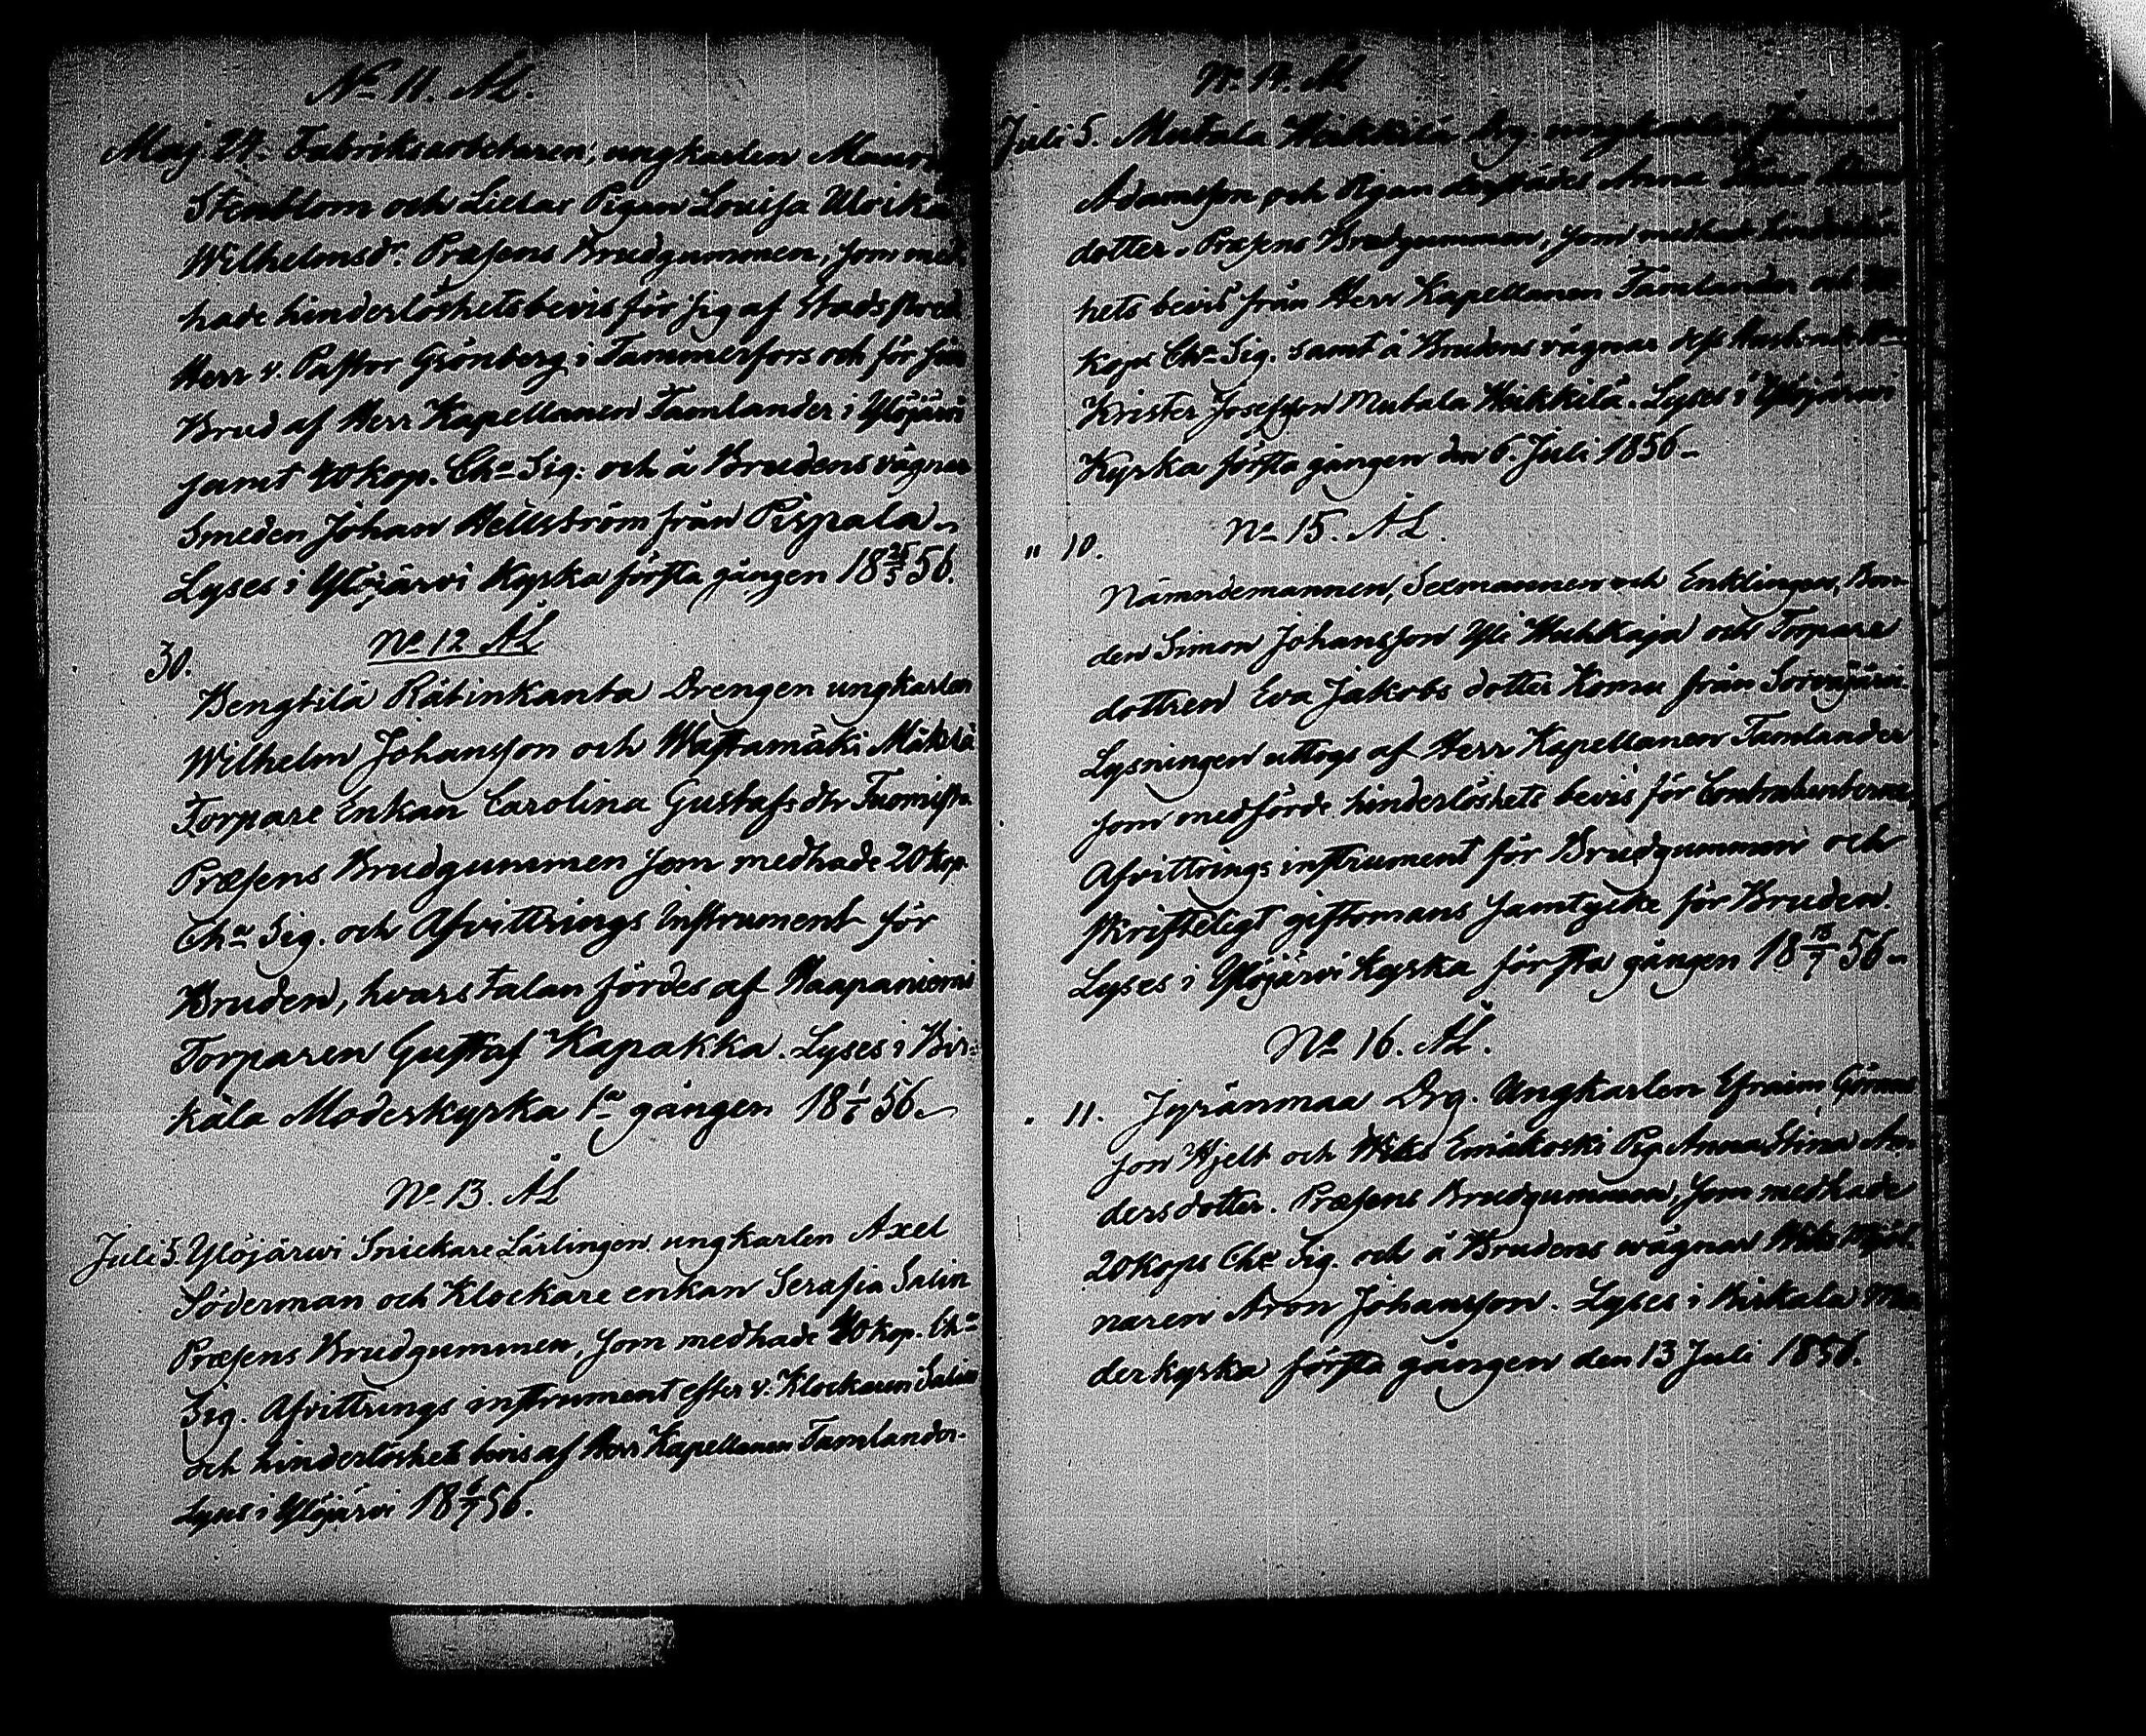 No 11. ÅL.
Maj 24. Fabriksarbetaren, ungkarlen
Stenblom och Lielax Pigan Louisa Ulrika
Wilhelmsdr. Præsens Brudgummen, som med
hade hinderlöshetsbevis för sig af Stadspred
Herr v. Pastor Grönberg i Tammerfors och för sin
Brud af Herr Kapellanen Tamlander i Ylöjärvi
samt 40 kop. Cha Sig: och å Brudens vägnar
Smeden Johan Hellström från Pispala.
Lyses i Ylöjärvi Kyrka första gången 18 25/5 56.
30. No 12 ÅL
Bengtilä Rätinkanta Drengen ungkarlen
Wilhelm Johansson och Wastamäki
Torpare Enkan Carolina Gustafs dtr
Præsens Brudgummen som medhade 20 kop
Cha Sig. och Afvittrings Instrument för
Bruden, hvars talan fördes af Haapaniemi
Torparen Gustaf Kapakka. Lyses i Bir-
kala Moderkyrka 1a gången 18 1/6 56.
No 13. ÅL
Juli 5. Ylöjärwi Snickare Lärlingen ungkarlen Axel
Söderman och Klockare enkan Serafia Salin
Præsens Brudgummen, som medhade 40 kop. Cha
Sig. Afvittrings instrument efter v. Klockaren Salin
och hinderlöshets bevis af Herr Kapellanen Tamlander.
Lyses i Ylöjärvi 18 6/7 56.
No 14. ÅL
Juli 5. Mutala Heikkilä Drg. ungkarlen
Adamsson och Pigan derstädes Anna
dotter. Præsens Brudgummen, som medhade hinderlös
hets bevis från Herr Kapellanen Tamlander och 20
kops Cha Sig. samt å Brudens vägnar dess
Krister Josefsson Mutala Heikkilä. Lyses i Ylöjärvi
Kyrka första gången den 6. Juli 1856.
No 15. ÅL.
" 10.
Nämndemannen, Sexmannen och Enklingen, Bon-
den Simon Johansson Yli Huhkaja och Torpare
dottren Eva Jakobs dotter Komu från
Lysningen uttogs af Herr Kapellanen Tamlander
som medförde hinderlöshets bevis för Contrahenterne,
Afvittrings instrument för Brudgummen och
skrifteligt giftomans samtycke för Bruden.
Lyses i Ylöjärvi Kyrka första gången 18 13/7 56.
No 16. ÅL.
" 11. Jyränmaa Drg. Ungkarlen Efraim
son Hjelt och Emäkoski Pig. Anna Stina An-
ders dotter. Præsens Brudgummen, som medhade
20 kops Cha Sig. och å Brudens wägnar
naren Aron Johansson. Lyses i Birkala Mo
derkyrka första gången den 13 Juli 1856.